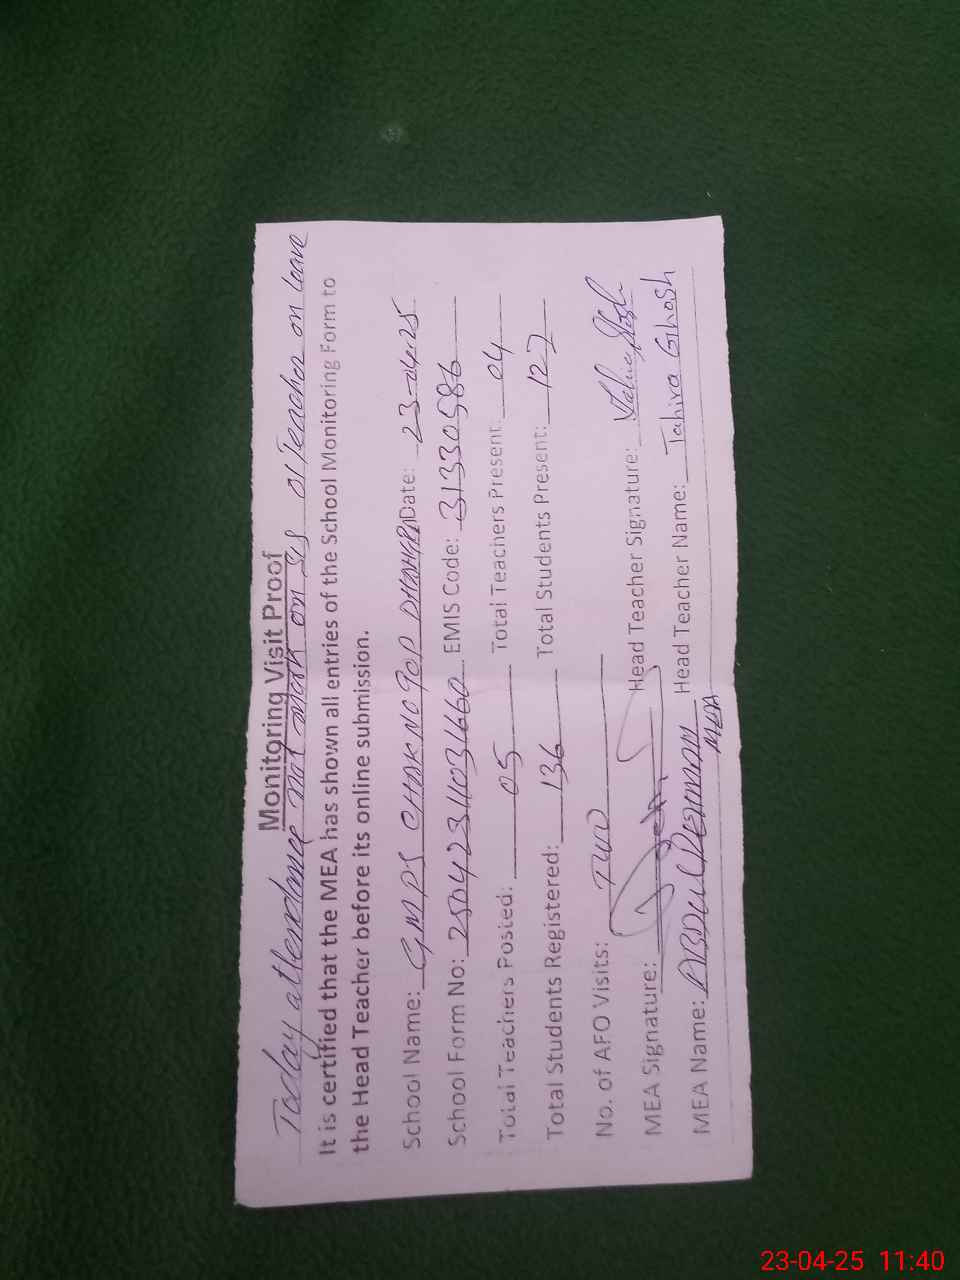 Monitoring Visit Proof
Today attendance not mark on SIS 01 Teacher on leave
It is certified that the MEA has shown all entries of the School Monitoring Form to
the Head Teacher before its online submission.
School Name: GMPS CHAK NO 9OP Date: 23-04-25
School Form No: EMIS Code: 31330586
Total Teachers Posted: 05 Total Teachers Present: 04
Total Students Registered: 136 Total Students Present: 127
No. of AFO Visits: TWO
MEA Signature: Head Teacher Signature:
MEA Name: ABDUL REHMAN Head Teacher Name: Tahira Ghosh
MEA
23-04-25 11:40